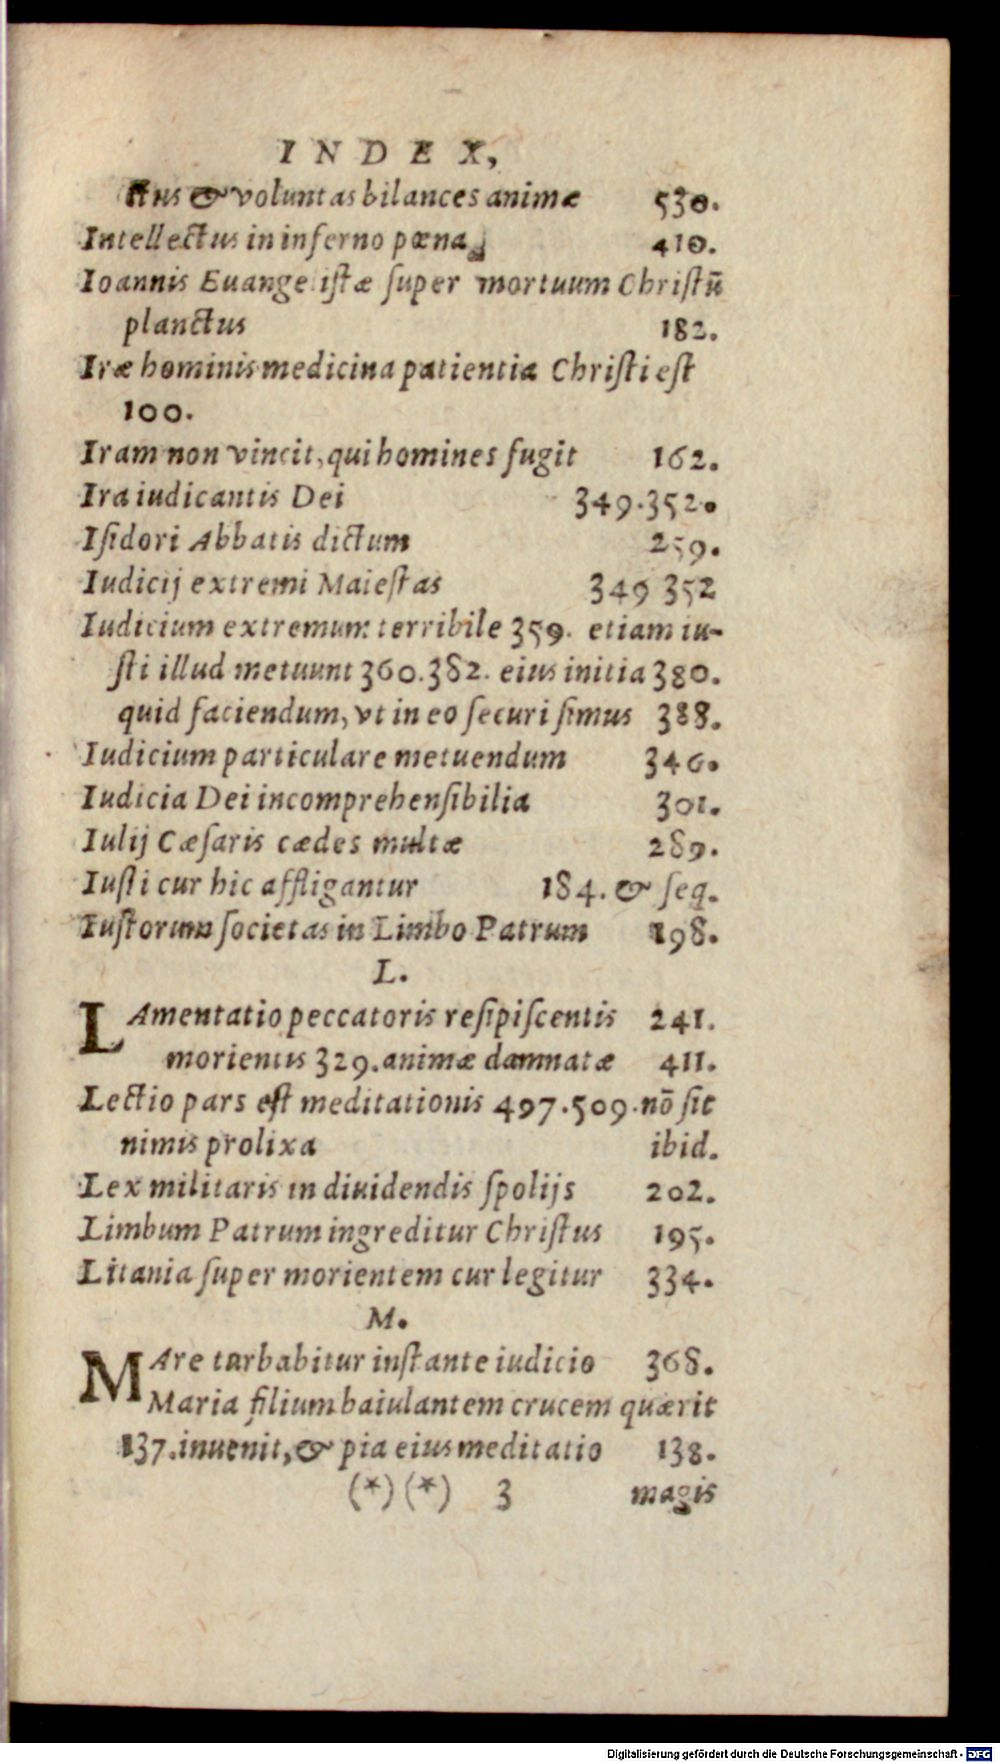 INDEX,
ctus & voluntas bilances animæ 530.
Intellectus in inferno pœna 410.
Ioannis Euangelistæ ſuper mortuum Chriſtū
planctus 182.
Iræ hominis medicina patientia Chriſti eſt
100.
Iram non vincit, qui homines fugit 162.
Ira iudicantis Dei 349.352.
Iſidori Abbatis dictum 259.
Iudicij extremi Maieſtas 349 352
Iudicium extremum terribile 359. etiam iu-
ſti illud metuunt 360.382. eius initia 380.
quid faciendum, vt in eo ſecuri ſimus 388.
Iudicium particulare metuendum 346.
Iudicia Dei incomprehenſibilia 301.
Iulij Cæſaris cædes multæ 289.
Iuſti cur hic affligantur 184. & ſeq.
Iuſtorum ſocietas in Limbo Patrum 198.
L.
LAmentatio peccatoris reſipiſcentis 241.
morientis 329. animæ damnatæ 411.
Lectio pars eſt meditationis 497.509. nō ſit
nimis prolixa ibid.
Lex militaris in diuidendis ſpolijs 202.
Limbum Patrum ingreditur Chriſtus 195.
Litania ſuper morientem cur legitur 334.
M.
MAre turbabitur inſtante iudicio 368.
Maria filium baiulantem crucem quærit
137. inuenit, & pia eius meditatio 138.
(*) (*) 3 magis
Digitalisierung gefördert durch die Deutsche Forschungsgemeinschaft - DFG